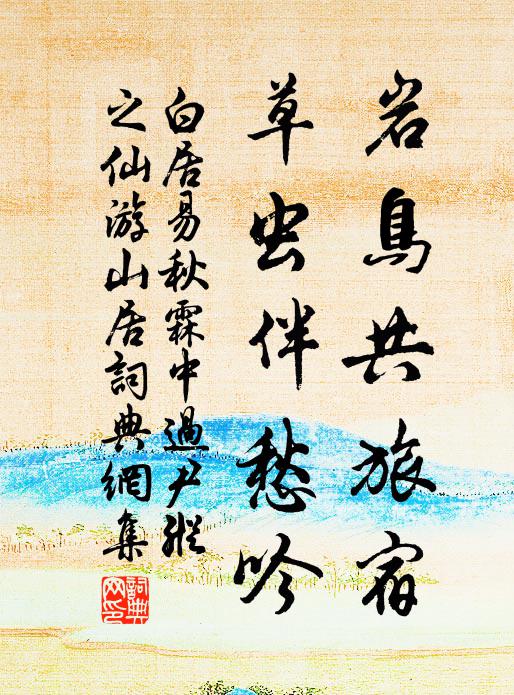 岩鳥共旅宿
草虫伴愁吟
白居易秋霖中過尹縱
之仙游山居詞典網集